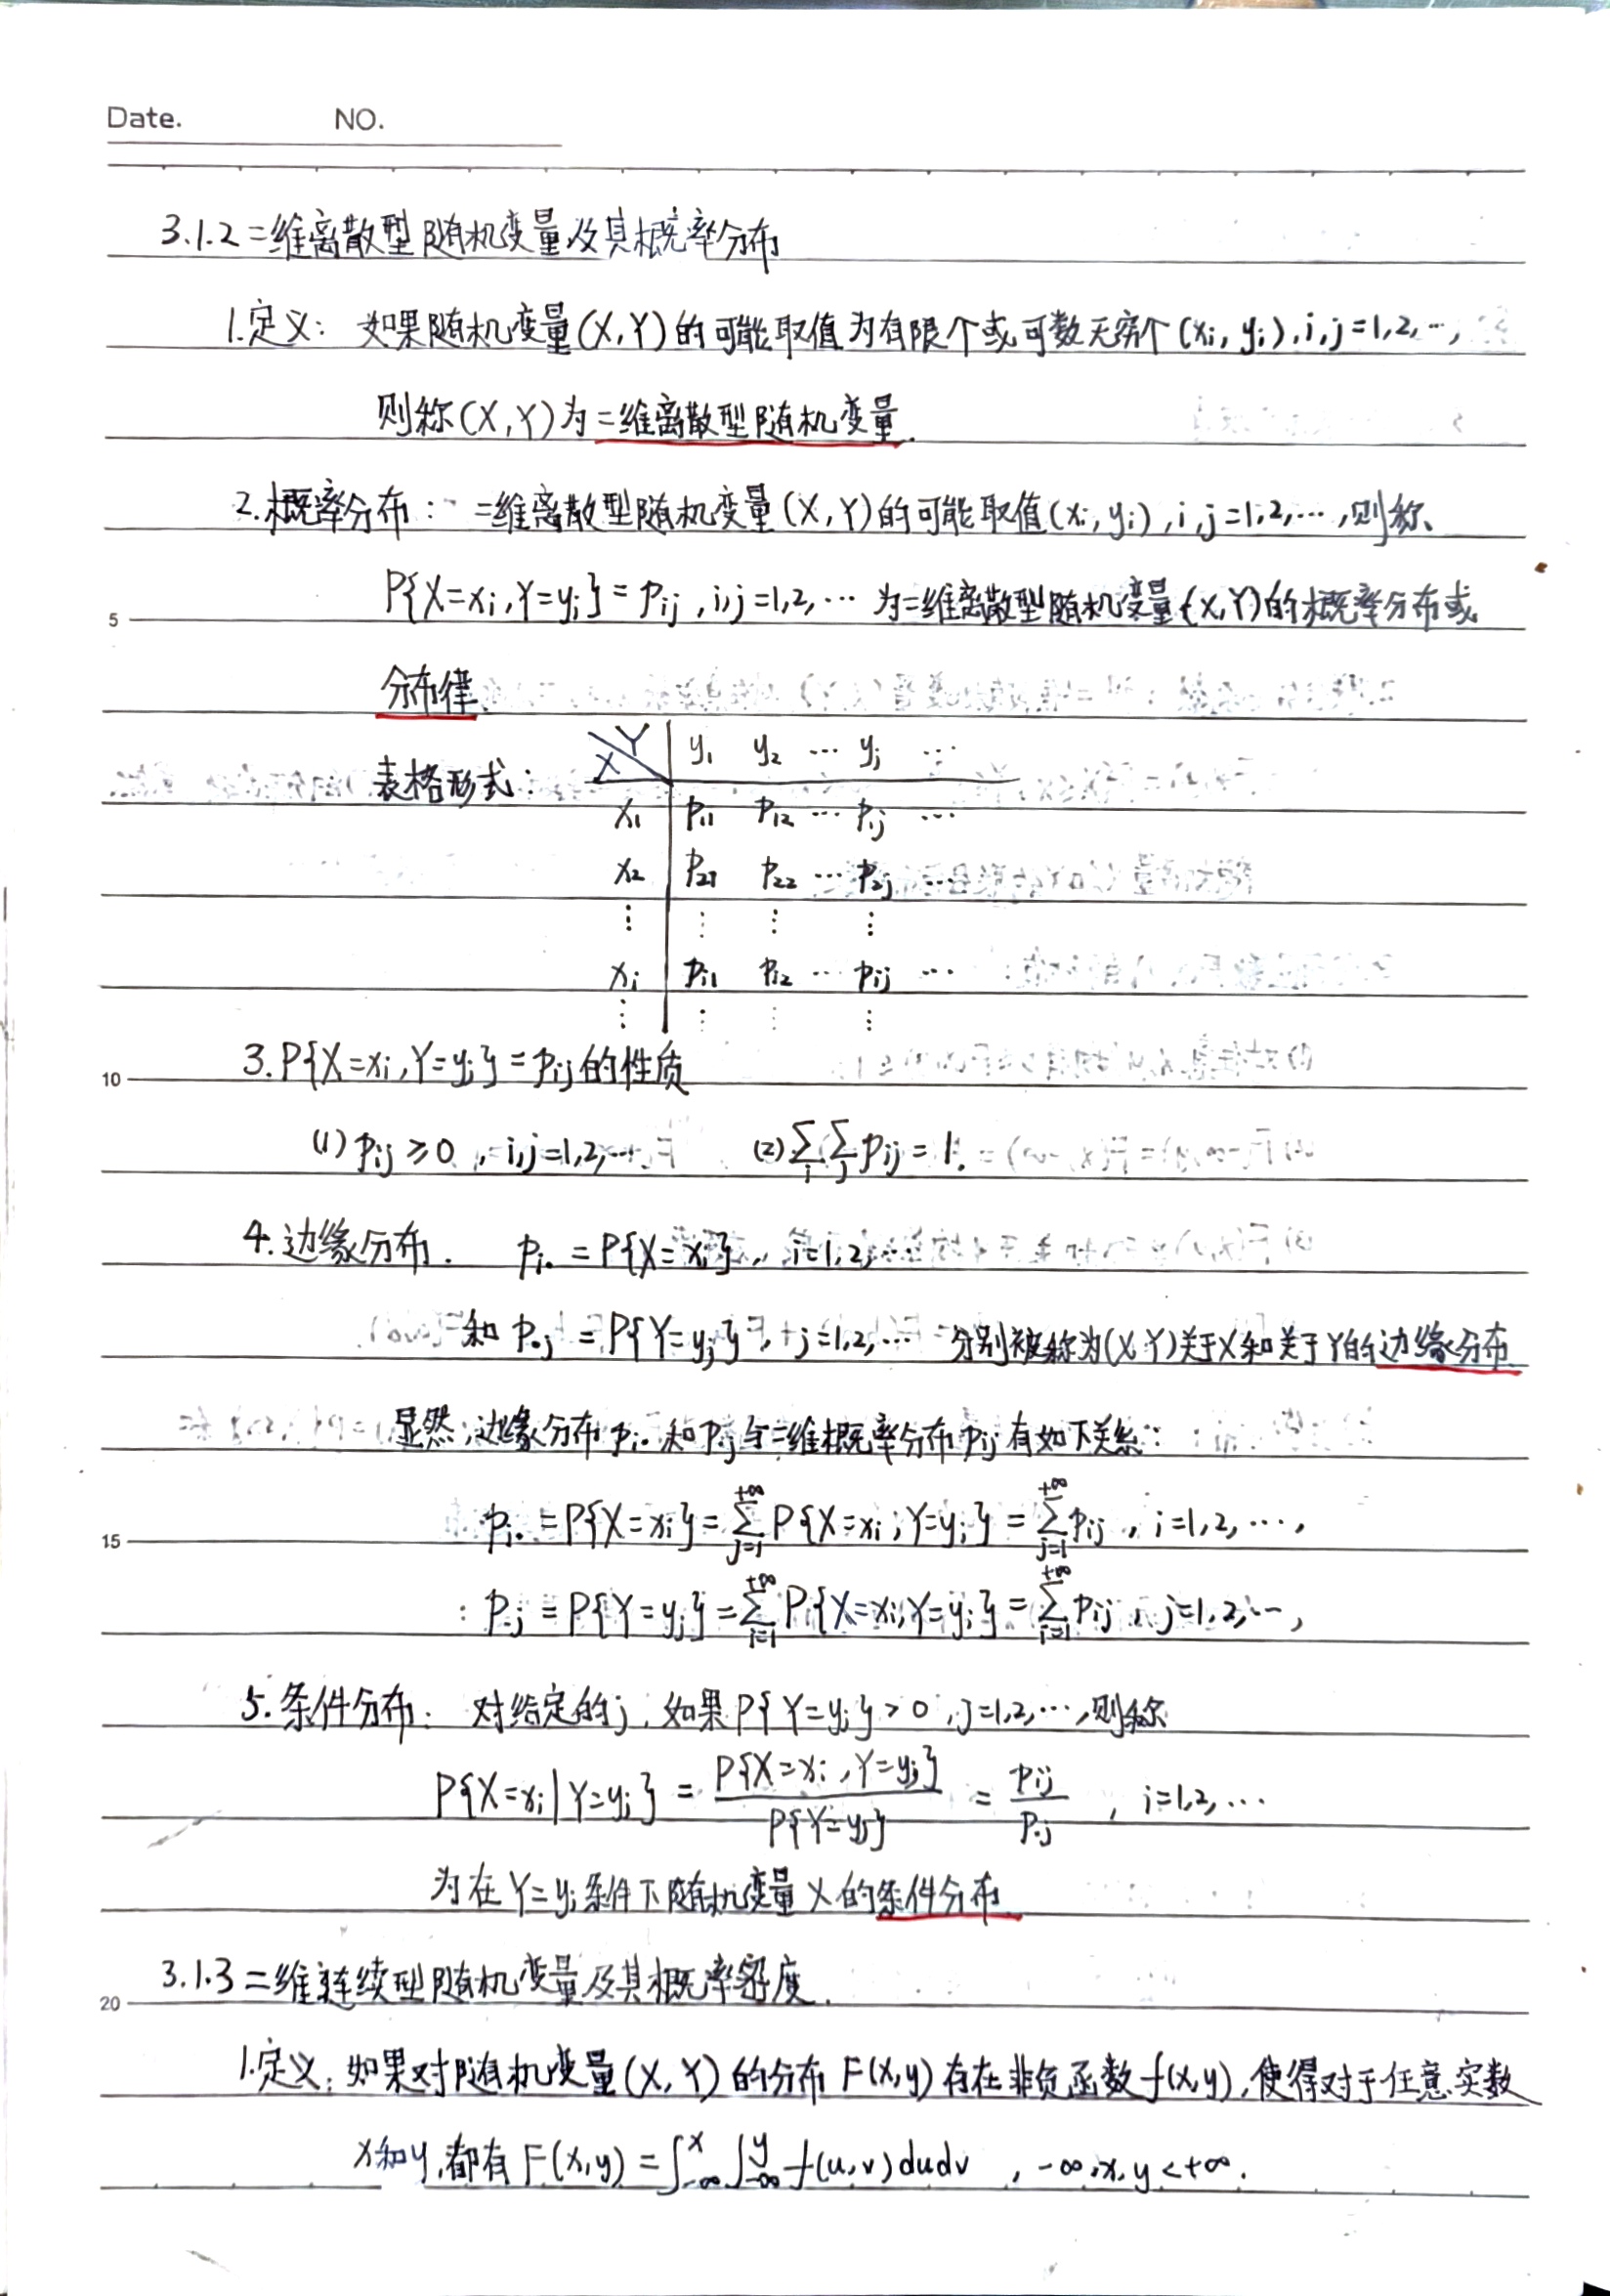 Date. NO.
3.1.2 二维离散型随机变量及其概率分布
1.定义: 如果随机变量(X,Y)的可能取值为有限个或可数无穷个(xi, yj),i,j=1,2,…,
则称(X,Y)为二维离散型随机变量.
2.概率分布: 二维离散型随机变量(X,Y)的可能取值(xi,yj),i,j=1,2,…,则称
5 P{X=xi,Y=yj}=pij,i,j=1,2,… 为二维离散型随机变量(X,Y)的概率分布或
分布律.
表格形式: X\Y y1 y2 … yj …
x1 p11 p12 … p1j …
x2 p21 p22 … p2j …
⋮ ⋮ ⋮ ⋮
xi pi1 pi2 … pij …
⋮ ⋮ ⋮ ⋮
10 3. P{X=xi,Y=yj}=pij的性质
(1) pij≥0, i,j=1,2,… (2) ∑i∑j pij=1.
4.边缘分布. pi·=P{X=xi}, i=1,2,…
和 p·j=P{Y=yj}, j=1,2,… 分别被称为(X,Y)关于X和关于Y的边缘分布
显然,边缘分布pi·和p·j与二维概率分布pij有如下关系:
15 pi·=P{X=xi}=∑_{j=1}^{+∞}P{X=xi,Y=yj}=∑_{j=1}^{+∞}pij, i=1,2,…,
p·j=P{Y=yj}=∑_{i=1}^{+∞}P{X=xi,Y=yj}=∑_{i=1}^{+∞}pij, j=1,2,…,
5.条件分布: 对给定的j,如果P{Y=yj}>0,j=1,2,…,则称
P{X=xi|Y=yj}=P{X=xi,Y=yj}/P{Y=yj}=pij/p·j, i=1,2,…
为在Y=yj条件下随机变量X的条件分布.
20 3.1.3 二维连续型随机变量及其概率密度.
1.定义: 如果对随机变量(X,Y)的分布F(x,y)存在非负函数f(x,y),使得对于任意实数
x和y,都有F(x,y)=∫_{-∞}^{x}∫_{-∞}^{y}f(u,v)dudv, -∞<x,y<+∞.